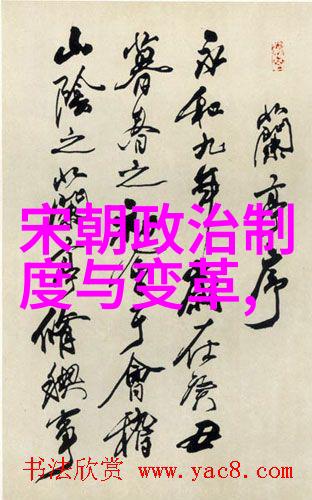 蘭亭序
永和九年歲在癸丑
暮春之初會于會稽
山陰之蘭亭脩禊事
宋朝政治制
度与变革,
书法欣赏 www.yac8.com